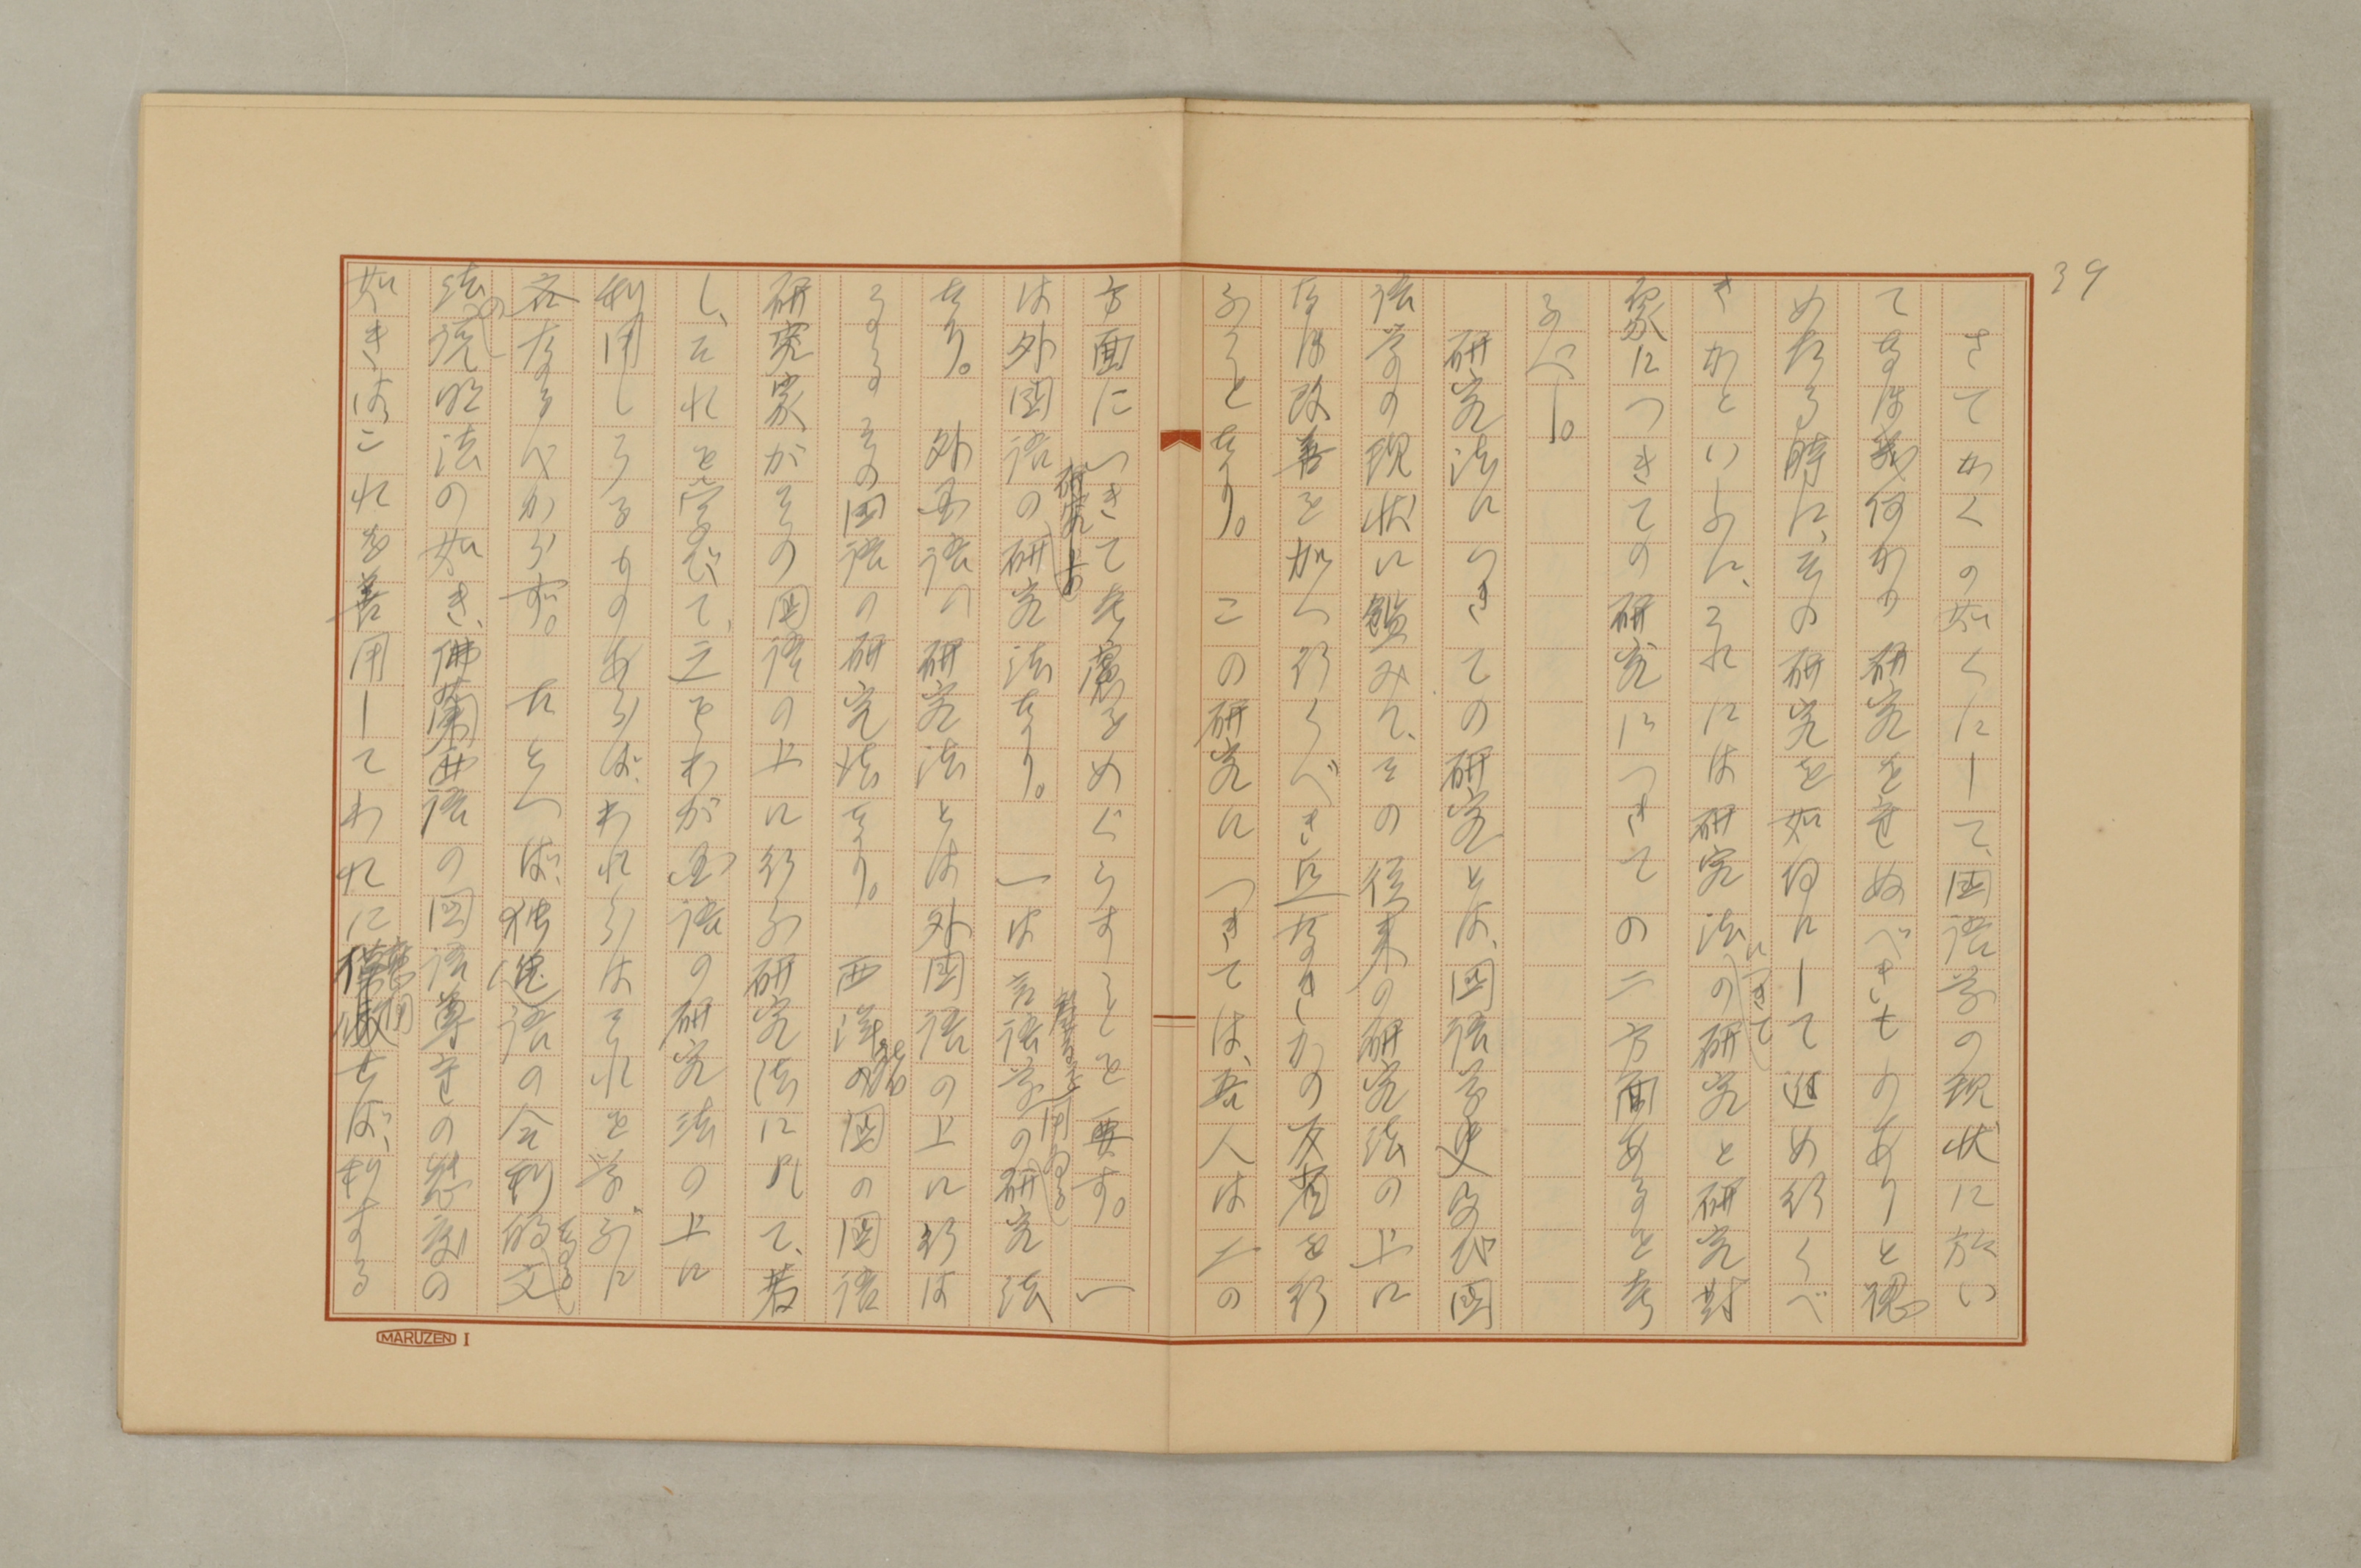 39
さてかくの如くにして、国語学の現状に於い
てなほ幾何かの研究を定めべきものありと認
めたる時に、その研究を如何にして進め行くべ
きかといふに、それには研究法につきての研究と研究對
象につきての研究につきての二方面あるを考
ふべし。
研究法につきての研究とは、国語学史及び国
語学の現状に鑑みて、その従来の研究法の上に
なほ改善を加へ行くべき点なきかの反省を行
ふことなり。この研究につきては、吾人は二の
方面につきて考慮をめぐらすことを要す。一
は外国語の研究上の研究法なり。一は言語学の研究法
なり。外国語の研究法とは外国語の上に行は
るゝその国語の研究法なり。西洋の諸国の国語
研究家がその国語の上に行ふ研究法に凡て、若
し、それを学びて、之をわが国語の研究法の上に
利用しうるものあらば、われらはそれを学ぶに
吝なるべからず。たとへば、独逸語の合利的なる文
法の説明法の如き、佛蘭西語の国語尊重の態度の
如きはこれを善用してわれに應用せば、利する
MARUZEN I